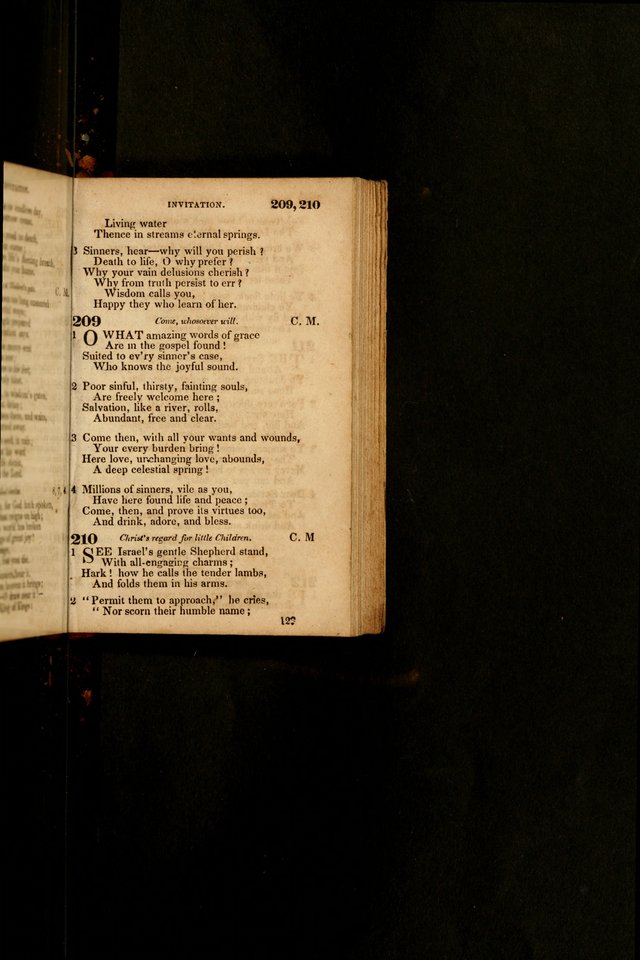 INVITATION. 209, 210
Living water
Thence in streams eternal springs.
3 Sinners, hear—why will you perish ?
Death to life, O why prefer ?
Why your vain delusions cherish ?
Why from truth persist to err ?
Wisdom calls you,
Happy they who learn of her.
209 Come, whosoever will. C. M.
1 O WHAT amazing words of grace
Are in the gospel found !
Suited to ev'ry sinner's case,
Who knows the joyful sound.
2 Poor sinful, thirsty, fainting souls,
Are freely welcome here ;
Salvation, like a river, rolls,
Abundant, free and clear.
3 Come then, with all your wants and wounds,
Your every burden bring !
Here love, unchanging love, abounds,
A deep celestial spring !
4 Millions of sinners, vile as you,
Have here found life and peace ;
Come, then, and prove its virtues too,
And drink, adore, and bless.
210 Christ's regard for little Children. C. M
1 SEE Israel's gentle Shepherd stand,
With all-engaging charms ;
Hark ! how he calls the tender lambs,
And folds them in his arms.
2 "Permit them to approach," he cries,
"Nor scorn their humble name ;